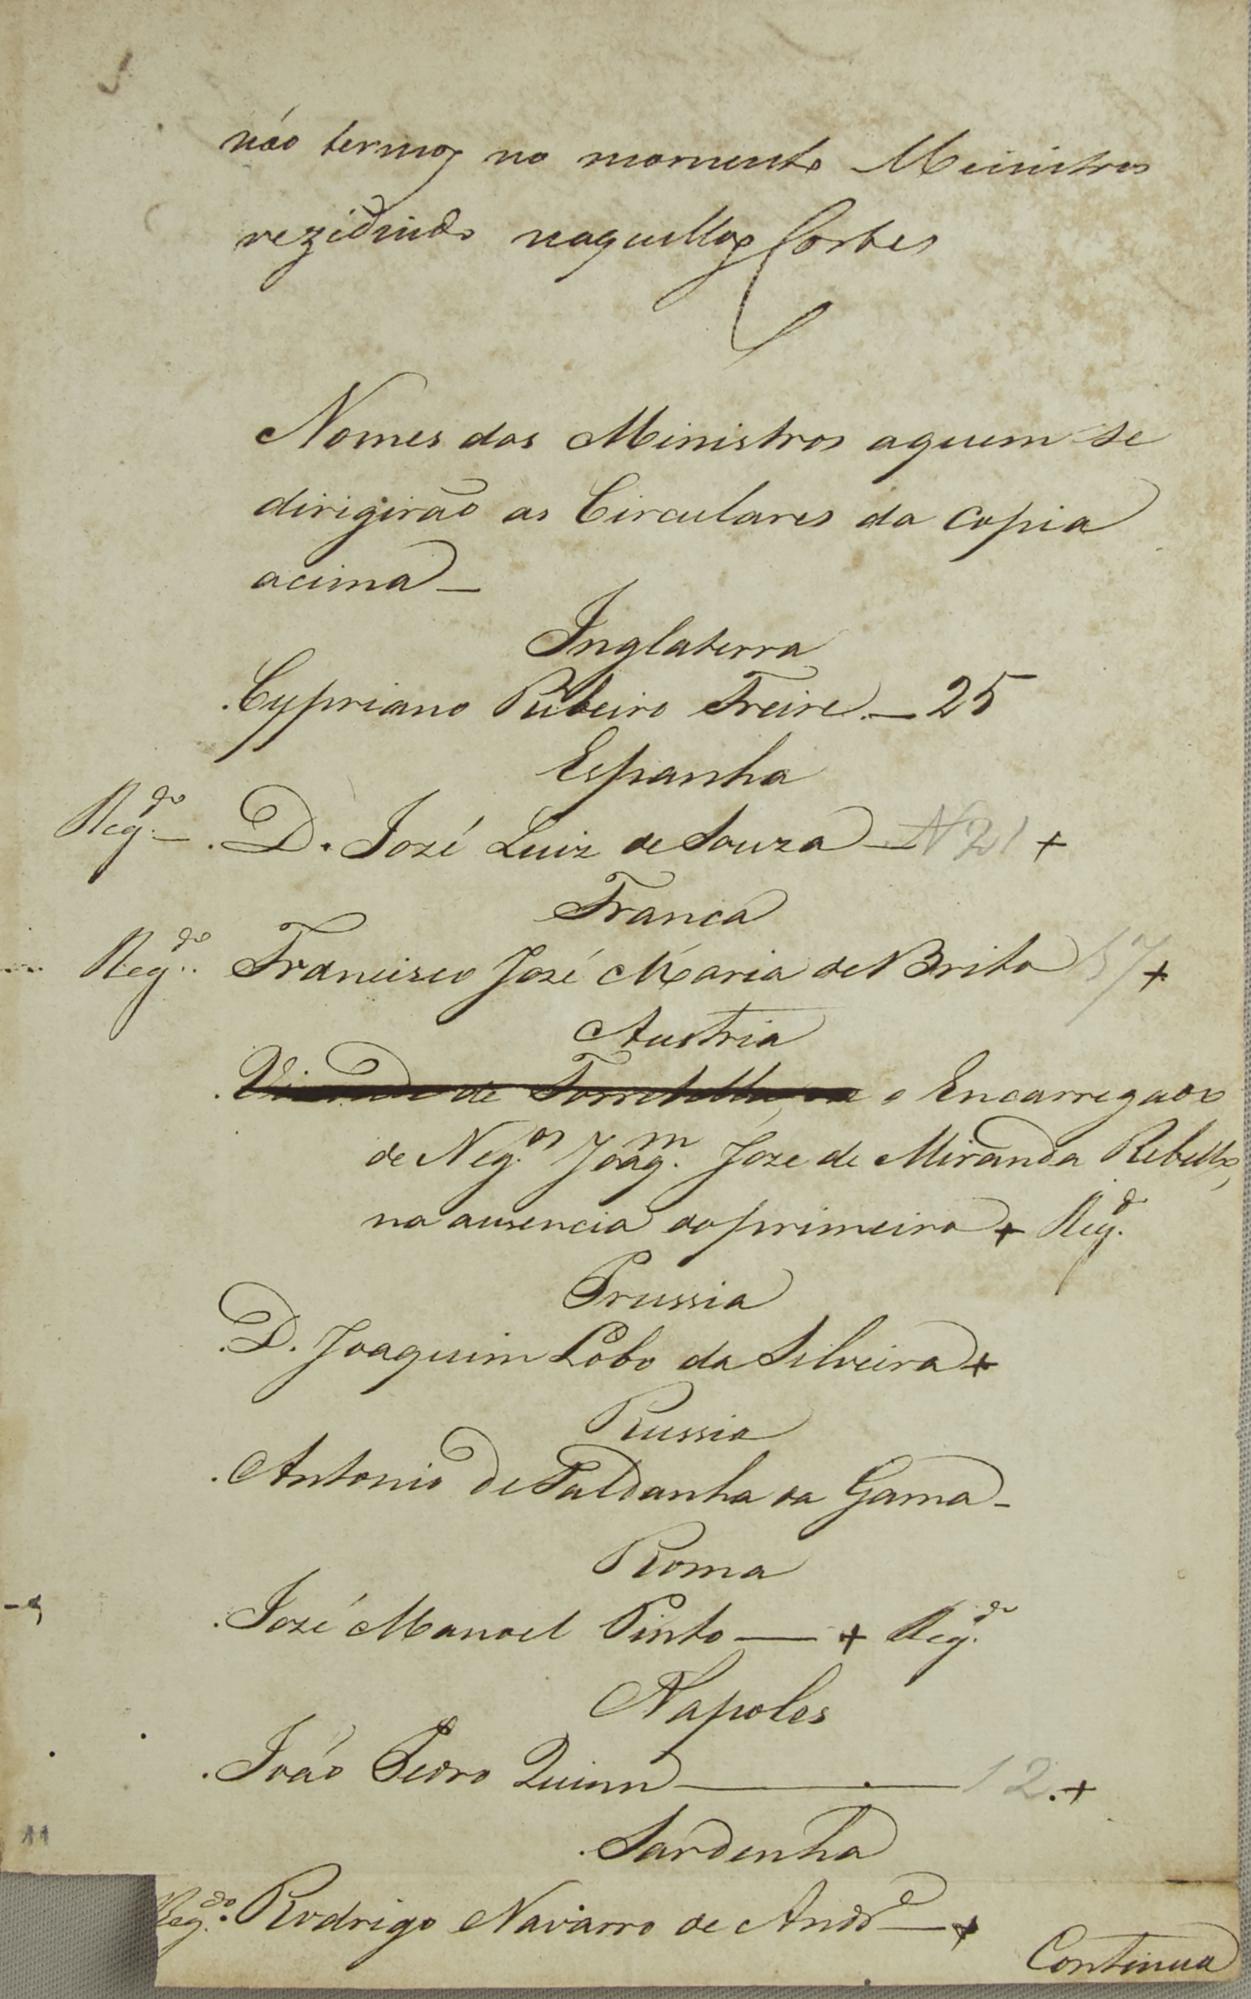 não termos no momento Ministros
rezidindo naquellas Cortes
Nomes dos Ministros aquem se
dirigirão as Circulares da copia
acima —
Inglaterra
Cypriano Ribeiro Freire — 25
Espanha
Reg.do — D. José Luiz de Souza — N 21 +
Franca
Reg.do Francisco José Maria de Brito 57 +
Austria
Visconde de Torrebella, ou o Encarregado
de Neg.os Joaq.m Joze de Miranda Rebello,
na ausencia do primeiro + Reg.do
Prussia
D. Joaquim Lobo da Silveira +
Russia
Antonio de Saldanha da Gama —
Roma
José Manoel Pinto — + Reg.do
Napoles
João Pedro Quinn — 12. +
Sardenha
Reg.do Rodrigo Navarro de Andr.e — +
Continua
11